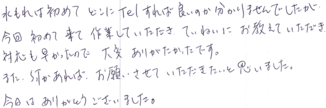 水もれは初めてどこにTelすれば良いのか分かりませんでしたが、
今回初めて来て作業していただきていねいにお教えていただき
対応も早かったので大変ありがたかったです。
また何かあればお願いさせていただきたいと思いました。
今日はありがとうございました。